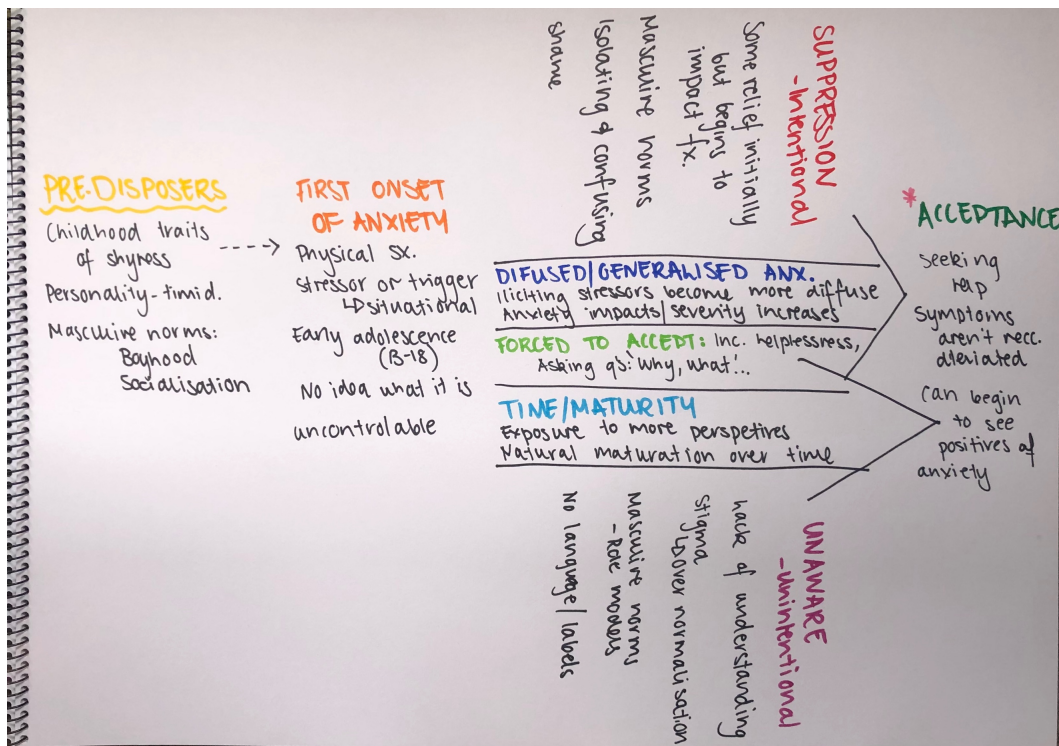 PRE-DISPOSERS
Childhood traits
of shyness
Personality-timid.
Masculine norms:
Boyhood
Socialisation
FIRST ONSET
OF ANXIETY
Physical sx.
stressor or trigger
↳situational
Early adolescence
(13-18)
No idea what it is
uncontrolable
SUPPRESSION
-Intentional
Some relief initially
but begins to
impact fx.
Masculine norms
Isolating & confusing
shame
DIFUSED/GENERALISED ANX.
Iliciting stressors become more diffuse
Anxiety impacts/severity increases
FORCED TO ACCEPT: Inc. helplessness,
Asking q's: 'Why, what'...
TIME/MATURITY
Exposure to more perspetives
Natural maturation over time
UNAWARE
-unintentional
Lack of understanding
stigma
↳over normalisation
Masculine norms
-Role models
No language/labels
*ACCEPTANCE
seeking
help
Symptoms
aren't necc.
alleviated
can begin
to see
positives of
anxiety